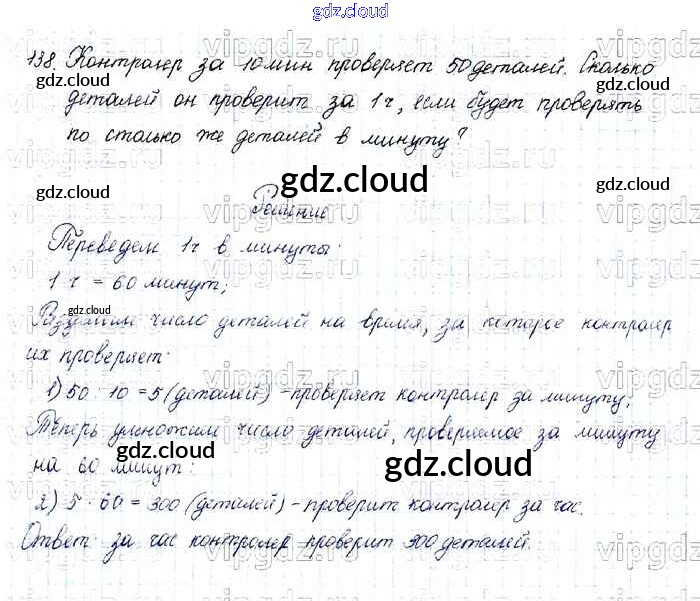 gdz.cloud
138. Контролер за 10 мин проверяет 50 деталей. Сколько
деталей он проверит за 1 ч, если будет проверять
по столько же деталей в минуту?
Решение
Переведем 1 ч в минуты:
1 ч = 60 минут;
Разделим число деталей на время, за которое контролер
их проверяет:
1) 50 : 10 = 5 (деталей) - проверяет контролер за минуту.
Теперь умножим число деталей, проверяемое за минуту
на 60 минут:
2) 5 · 60 = 300 (деталей) - проверит контролер за час.
Ответ: за час контролер проверит 300 деталей.
gdz.cloud
gdz.cloud
gdz.cloud
gdz.cloud
gdz.cloud
gdz.cloud
gdz.cloud
gdz.cloud
vipgdz